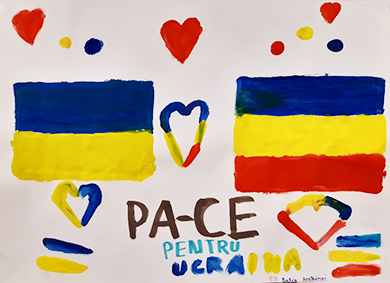 PA-CE
PENTRU
UCRAINA